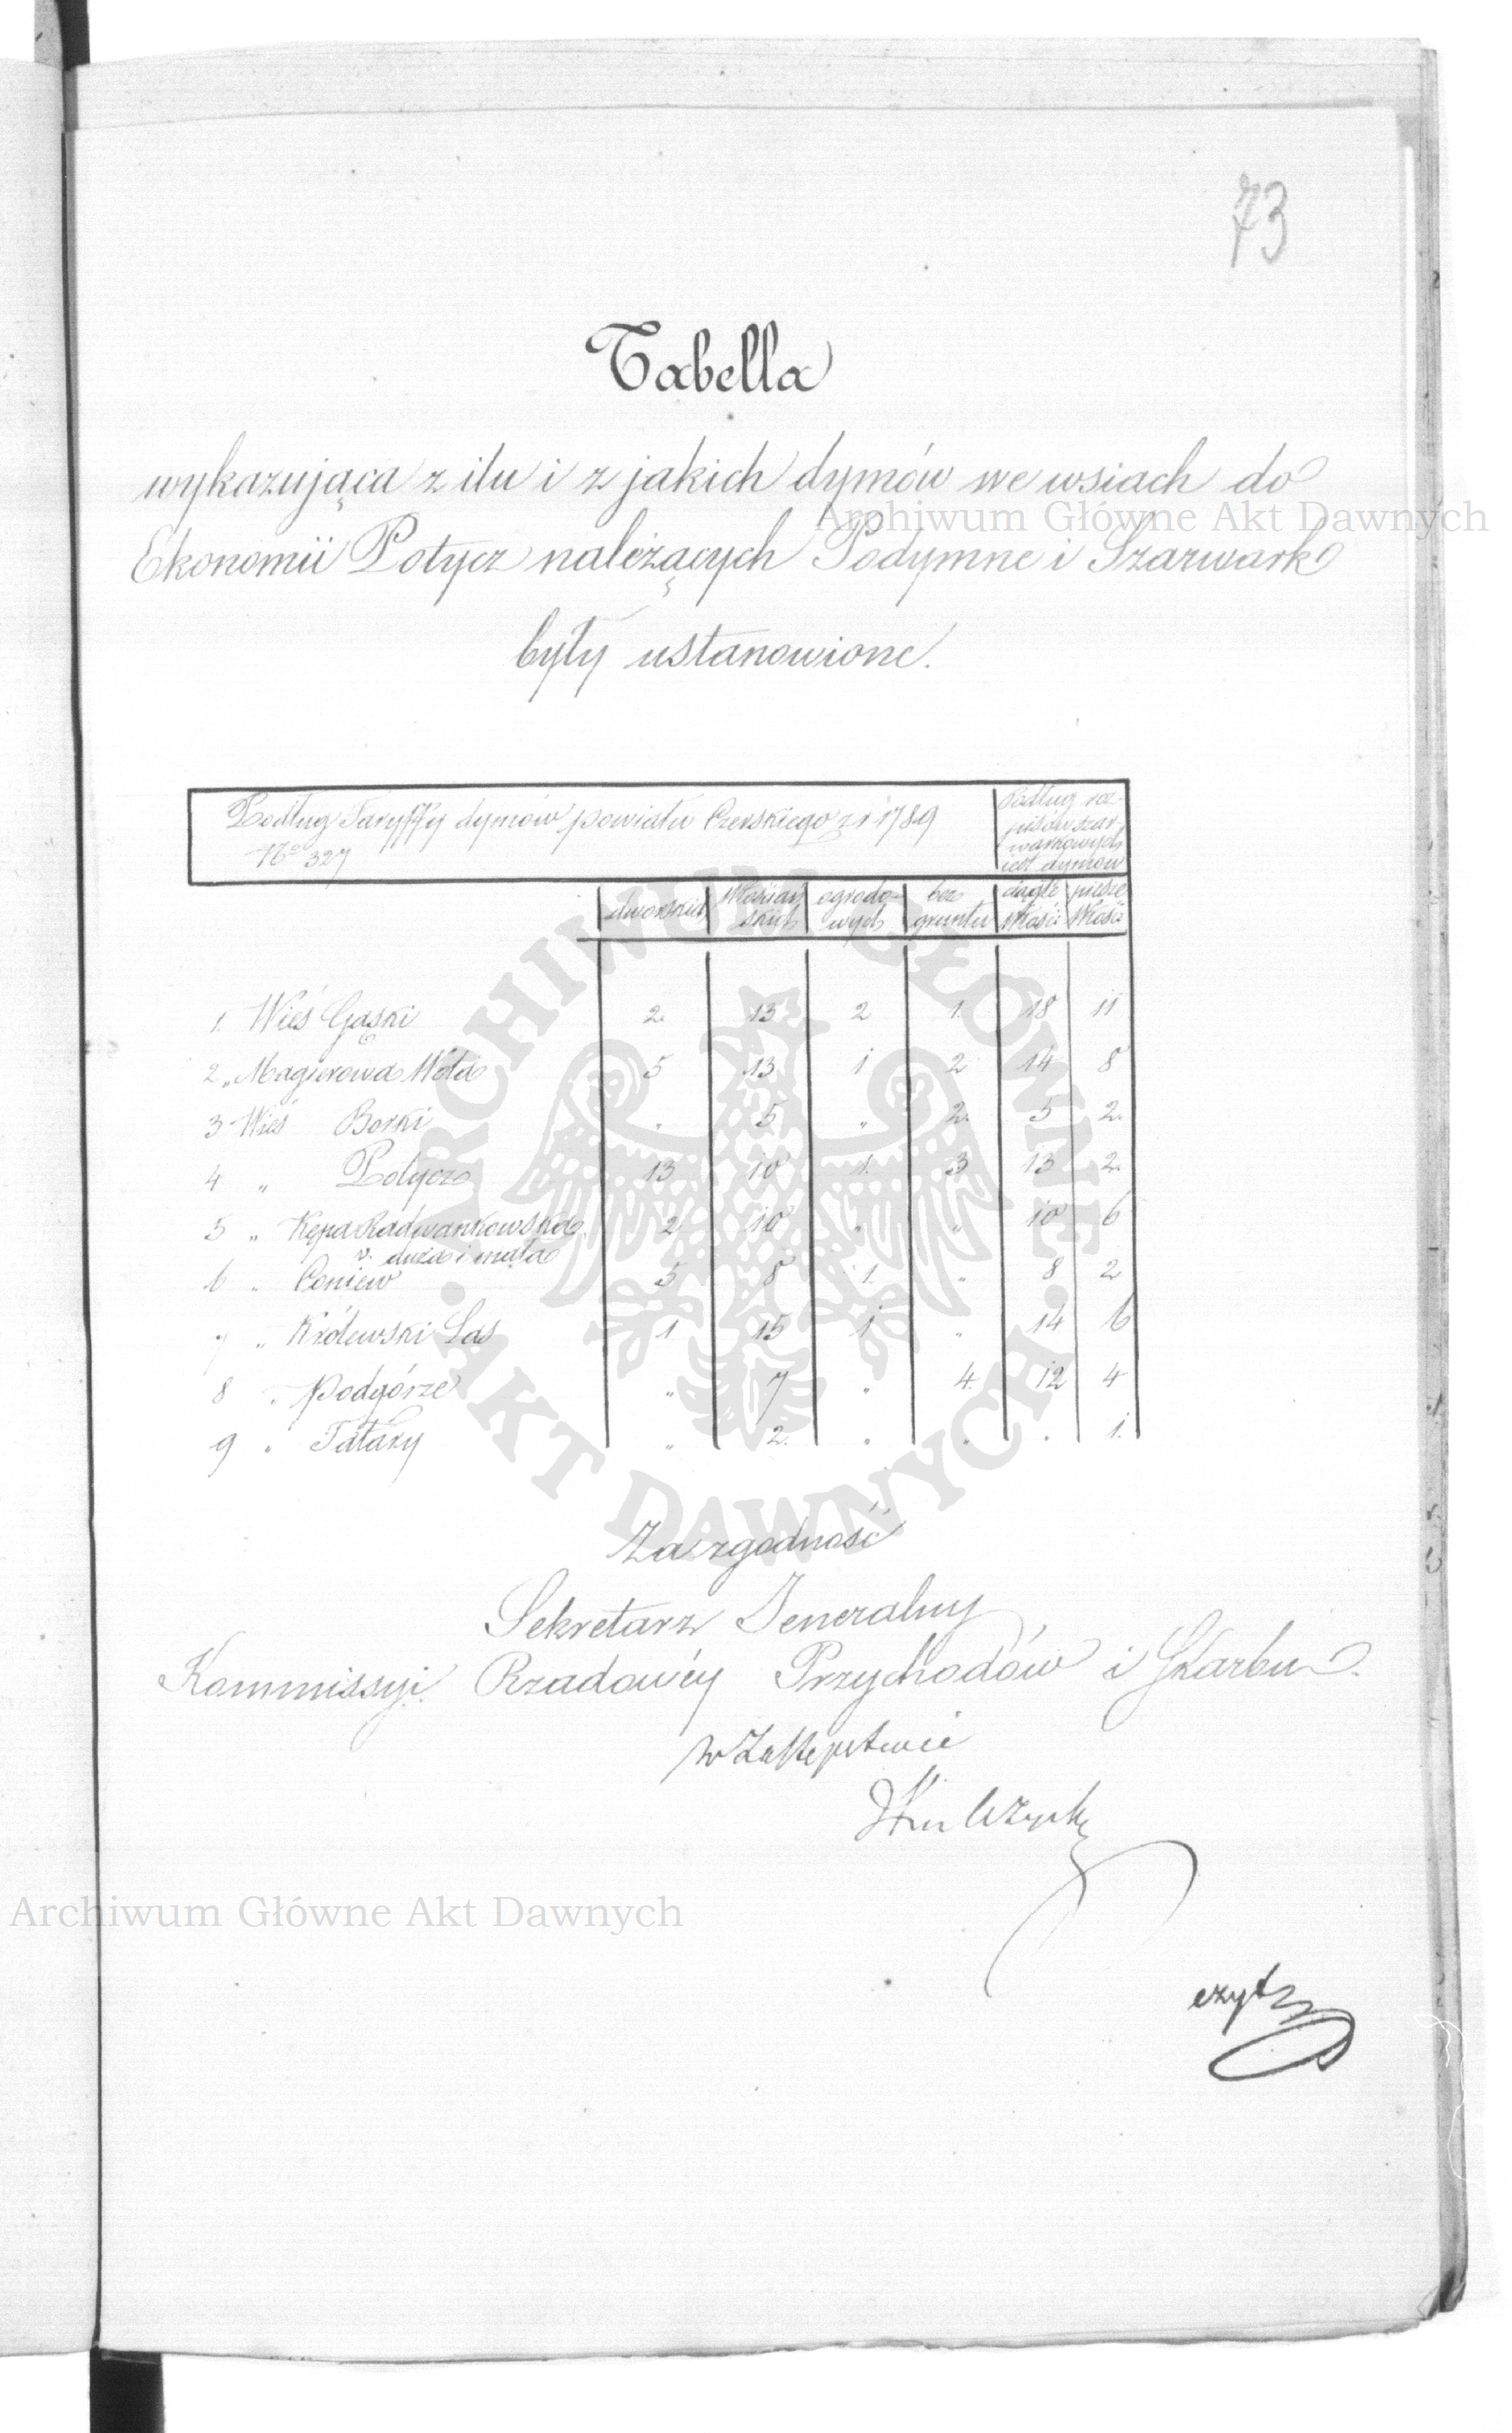 73
Tabella
wykazująca z ilu i z jakich dymów we wsiach do
Ekonomii Potycz należących Podymne i Szarwark
były ustanowione.
Podług Taryffy dymów powiatu Czerskiego z r 1789
No 327
Podług roz-
pisów szar-
warkowych
jest dymów
dworskich włościań- ogrodo- bez ciągłe piesze
skich wych gruntu włości włości
1. Wieś Gąski 2. 13 2 1. 18 11
2 „ Magierowa Wola 5 13 1 2 14 8
3 Wieś Borki „ 5 „ 2. 5 2.
4 „ Potycz 13 10 1. 3 13 2.
5 „ Kępa Radwankowska 2 10 „ „ 10 6
v. duża i mała
6 „ Coniew 5 8 1. „ 8 2
7 „ Królewski Las 1 15 1 „ 14 6
8 „ Podgórze „ 7 „ 4. 12 4
9 „ Tatary „ 2. „ „ „ 1.
Za zgodność
Sekretarz Jeneralny
Kommissyi Rządowéy Przychodów i Skarbu
w Zastępstwie
Archiwum Główne Akt Dawnych
Archiwum Główne Akt Dawnych
ARCHIWUM GŁÓWNE
AKT DAWNYCH